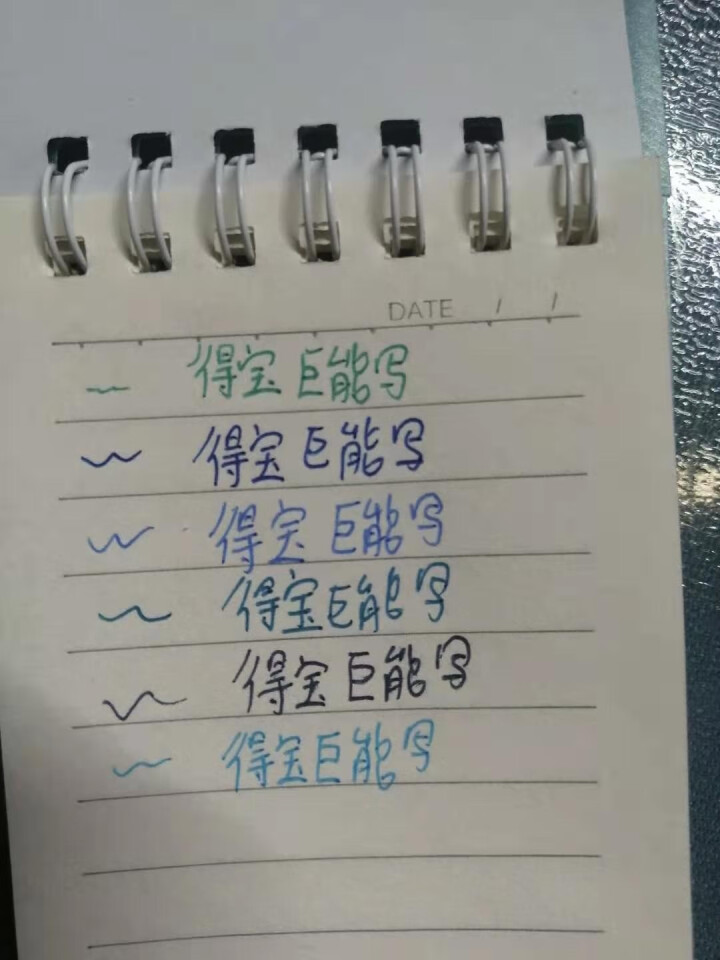 DATE / /
得宝巨能写
得宝巨能写
得宝巨能写
得宝巨能写
得宝巨能写
得宝巨能写